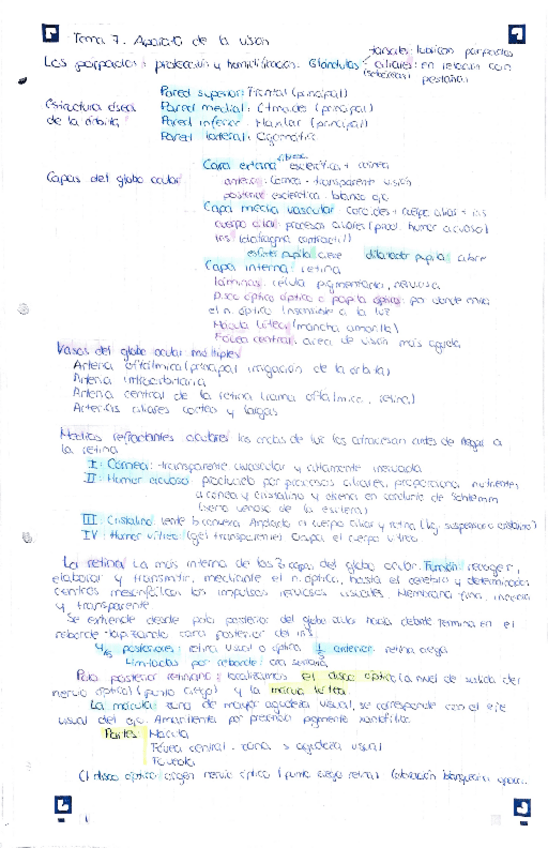 Tema 7. Aparato de la visión
tarsales: lubrican párpados
Los párpados: protección y humidificación. Glándulas ciliares: en relación con
(sebáceas) pestañas
Pared superior: Frontal (principal)
Estructura ósea Pared medial: Etmoides (principal)
de la órbita Pared inferior: Maxilar (principal)
Pared lateral: Cigomático
Capa externa fibrosa esclerótica + córnea
Capas del globo ocular anterior: Córnea - transparente visión
posterior esclerótica - blanco ojo
Capa media vascular coroides + cuerpo ciliar + iris
cuerpo ciliar: procesos ciliares (prod. humor acuoso)
iris (diafragma contráctil)
esfínter pupila cierre dilatador pupila abre
Capa interna: retina
láminas: célula pigmentaria, nerviosa
Disco óptico o papila óptica: por donde entra
el n. óptico. Insensible a la luz
Mácula lútea (mancha amarilla)
Fóvea central: área de visión más aguda
Vasos del globo ocular: múltiples
Arteria oftálmica (principal irrigación de la órbita)
Arteria infraorbitaria
Arteria central de la retina (rama oftálmica, retina)
Arterias ciliares cortas y largas
Medios refractantes oculares las ondas de luz los atraviesan antes de llegar a
la retina
I: Córnea: transparente avascular y altamente inervada
II: Humor acuoso: producido por procesos ciliares, proporciona nutrientes
a córnea y cristalino y drena en conducto de Schlemm
(seno venoso de la esclera)
III Cristalino: lente biconvexa. Anclado al cuerpo ciliar y retina (lig. suspensorio cristalino)
IV: Humor vítreo (gel transparente) Ocupa el cuerpo vítreo
La retina: La más interna de las 3 capas del globo ocular. Función recoger,
elaborar y transmitir, mediante el n. óptico, hasta el cerebro y determinados
centros mesencefálicos los impulsos nerviosos visuales. Membrana fina,
y transparente
Se extiende desde polo posterior del globo ocular hacia delante termina en el
reborde tapizando cara posterior del iris.
posteriores: retina visual u óptica anterior: retina ciega
limitadas por reborde: ora serrata
Polo posterior retiniano: localizamos el disco óptico (a nivel de salida del
nervio óptico) (punto ciego) y la mácula lútea
La mácula: zona de mayor agudeza visual, se corresponde con el eje
visual del ojo. Amarillenta por presencia pigmento xantofílico
Partes Mácula
Fóvea central: zona > agudeza visual
Foveola
El disco óptico: origen nervio óptico (punto ciego retina)